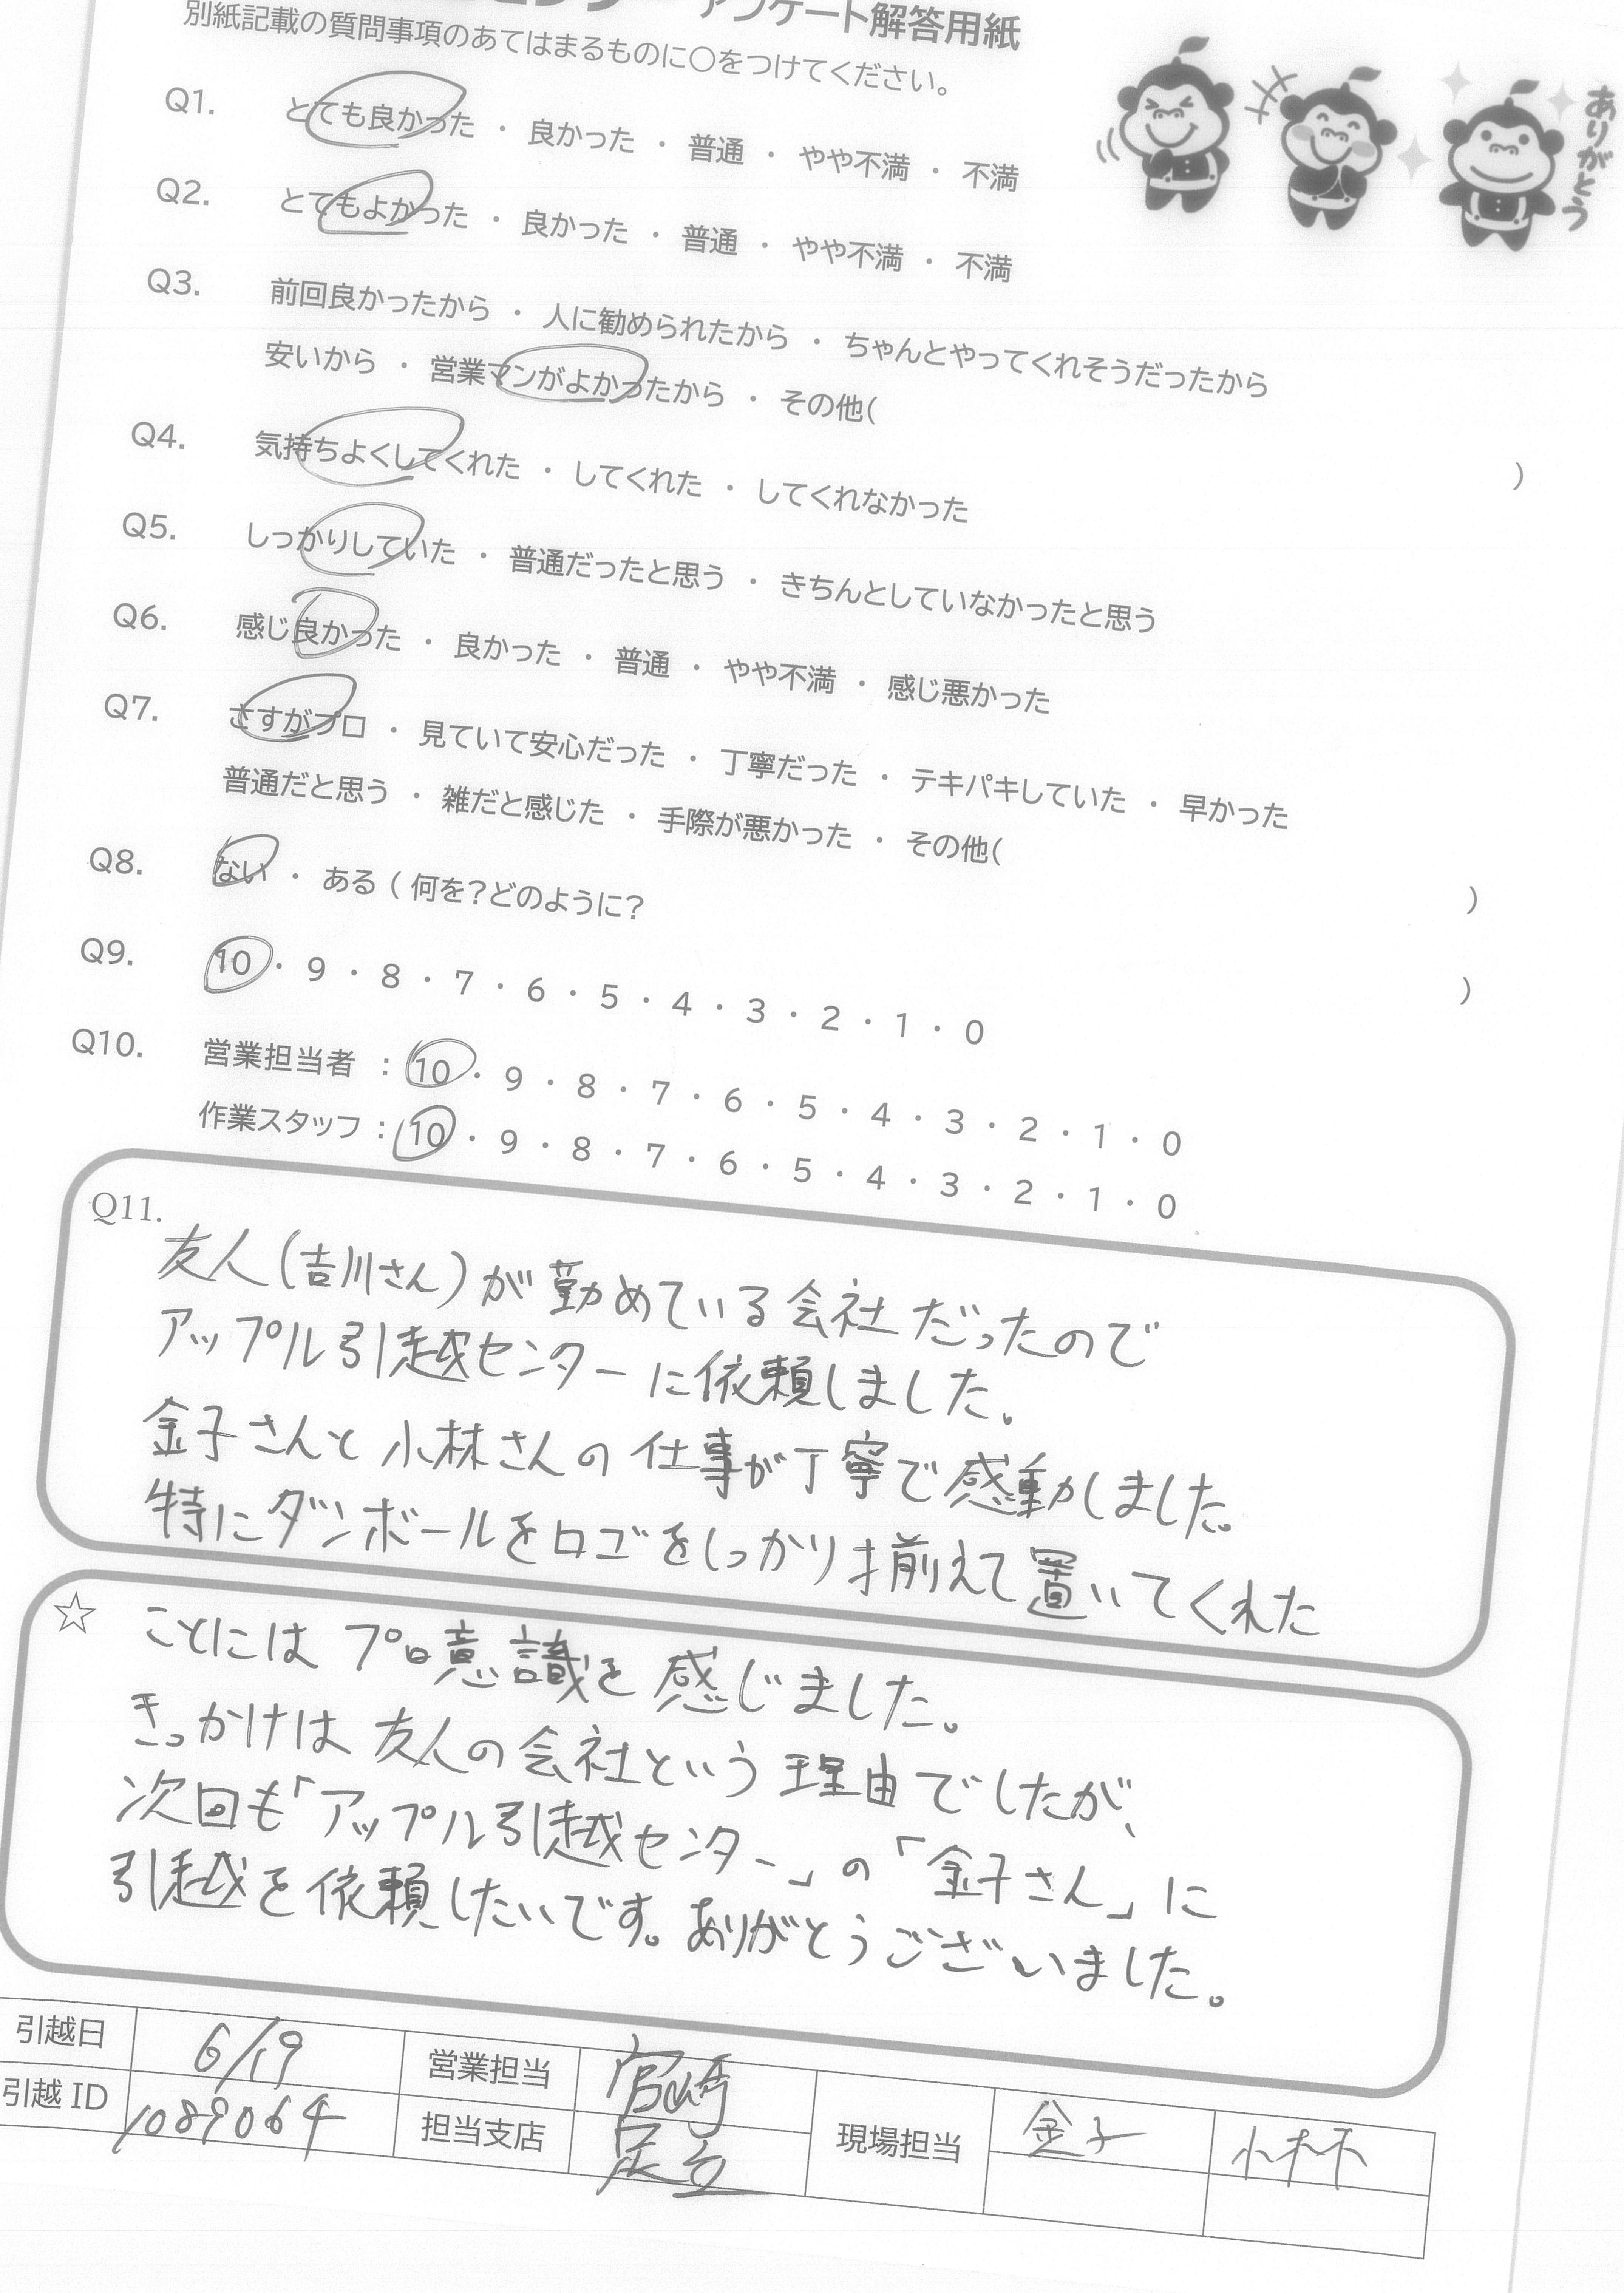 アンケート解答用紙
別紙記載の質問事項のあてはまるものに○をつけてください。
ありがとう
Q1. とても良かった ・ 良かった ・ 普通 ・ やや不満 ・ 不満
Q2. とてもよかった ・ 良かった ・ 普通 ・ やや不満 ・ 不満
Q3. 前回良かったから ・ 人に勧められたから ・ ちゃんとやってくれそうだったから
安いから ・ 営業マンがよかったから ・ その他( )
Q4. 気持ちよくしてくれた ・ してくれた ・ してくれなかった
Q5. しっかりしていた ・ 普通だったと思う ・ きちんとしていなかったと思う
Q6. 感じ良かった ・ 良かった ・ 普通 ・ やや不満 ・ 感じ悪かった
Q7. さすがプロ ・ 見ていて安心だった ・ 丁寧だった ・ テキパキしていた ・ 早かった
普通だと思う ・ 雑だと感じた ・ 手際が悪かった ・ その他( )
Q8. ない ・ ある ( 何を?どのように? )
Q9. 10 ・ 9 ・ 8 ・ 7 ・ 6 ・ 5 ・ 4 ・ 3 ・ 2 ・ 1 ・ 0
Q10. 営業担当者 : 10 ・ 9 ・ 8 ・ 7 ・ 6 ・ 5 ・ 4 ・ 3 ・ 2 ・ 1 ・ 0
作業スタッフ : 10 ・ 9 ・ 8 ・ 7 ・ 6 ・ 5 ・ 4 ・ 3 ・ 2 ・ 1 ・ 0
Q11.
友人(吉川さん)が勤めている会社だったので
アップル引越センターに依頼しました。
金子さんと小林さんの仕事が丁寧で感動しました。
特にダンボールをロゴをしっかり揃えて置いてくれた
☆ ことにはプロ意識を感じました。
きっかけは友人の会社という理由でしたが、
次回も「アップル引越センター」の「金子さん」に
引越を依頼したいです。ありがとうございました。
引越日 6/19 営業担当 宮崎 現場担当 金子 小林
引越ID 1089064 担当支店 足立